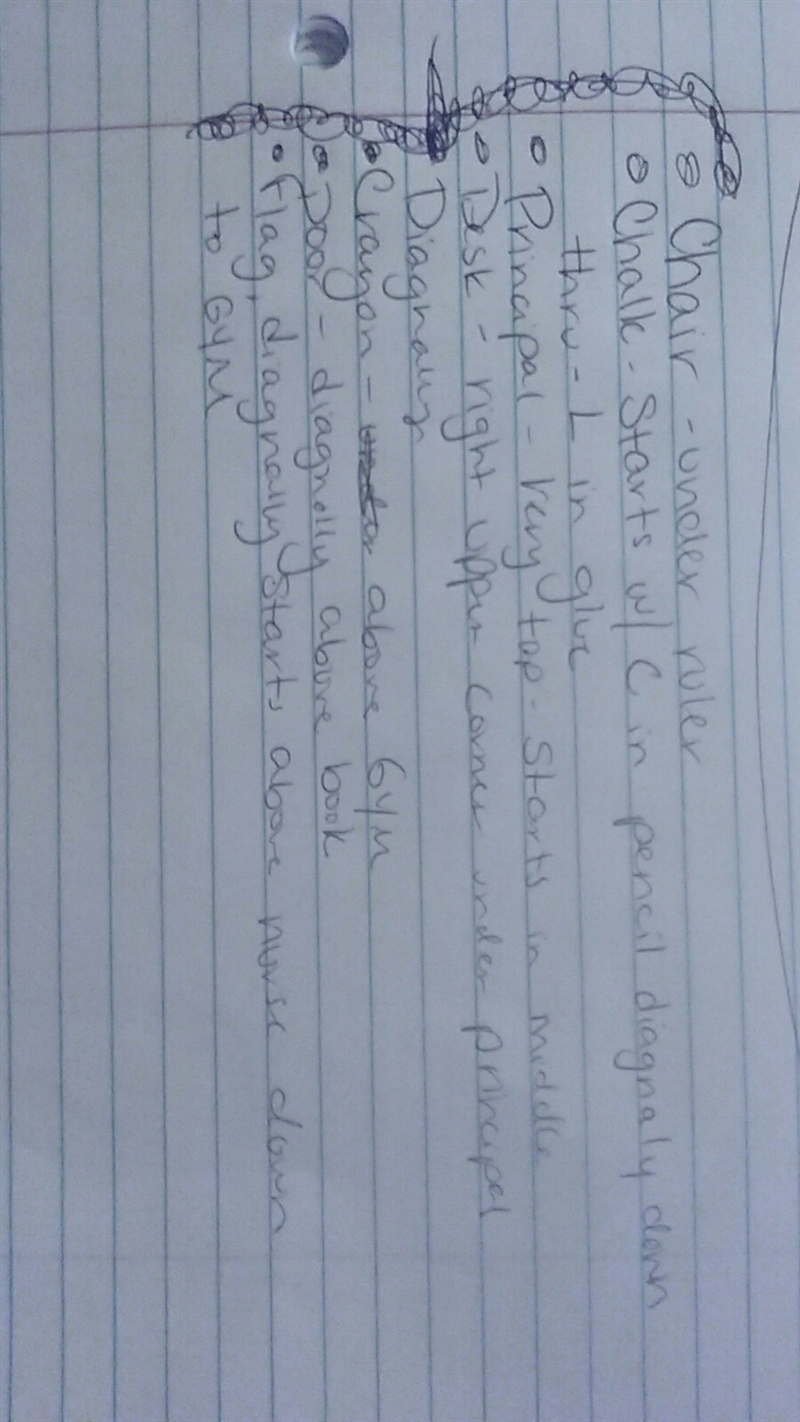 Chair - under ruler
Chalk - Starts w/ C in pencil diagnaly down
thru - L in glue
Principal - Very top - Starts in middle
Desk - right upper corner under principal
Diagnally
Crayon - above GYM
Door - diagnolly above book
Flag, diagnally Starts above nurse down
to GYM